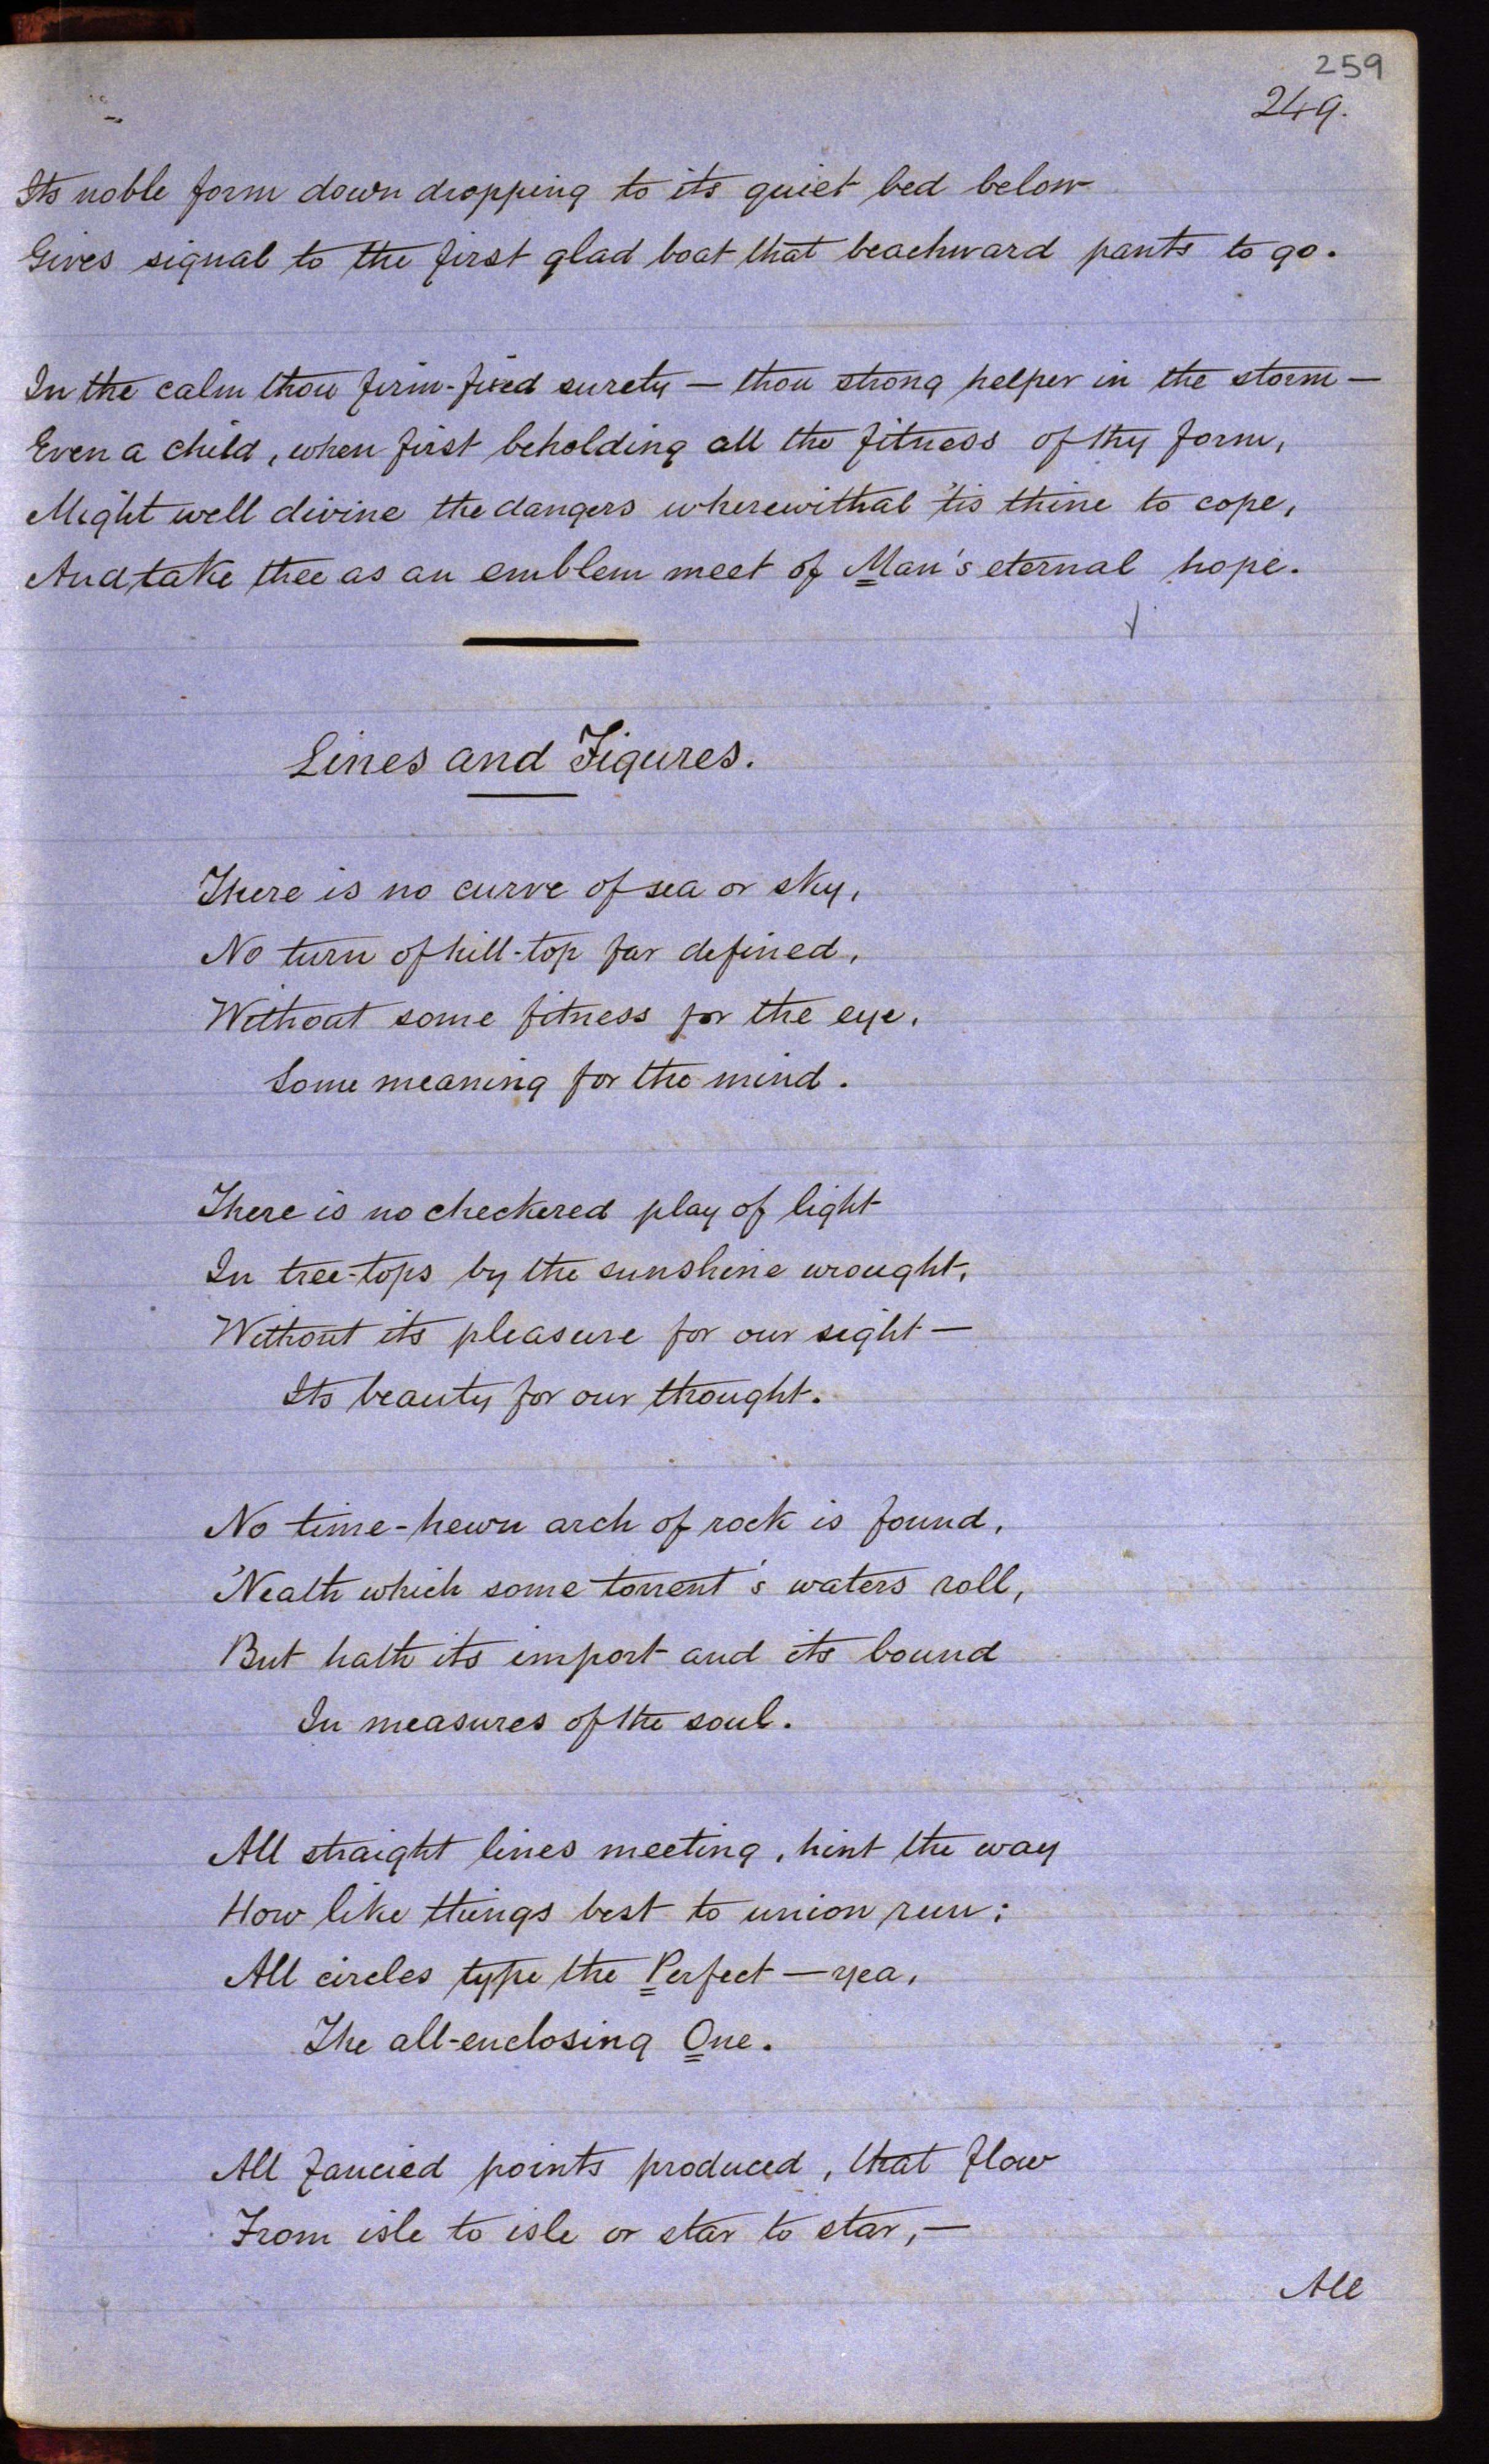 259
249.
Its noble form down dropping to its quiet bed below
Gives signal to the first glad boat that beachward pants to go.
In the calm thou firm-fixed surety — thou strong helper in the storm —
Even a child, when first beholding all the fitness of thy form,
Might well divine the dangers wherewithal 'tis thine to cope,
And take thee as an emblem meet of Man's eternal hope.
Lines and Figures.
There is no curve of sea or sky,
No turn of hill-top far defined,
Without some fitness for the eye,
Some meaning for the mind.
There is no checkered play of light
In tree-tops by the sunshine wrought,
Without its pleasure for our sight —
Its beauty for our thought.
No time-hewn arch of rock is found,
'Neath which some torrent's waters roll,
But hath its import and its bound
In measures of the soul.
All straight lines meeting, hint the way
How like things best to union run;
All circles type the Perfect — yea,
The all-enclosing One.
All fancied points produced, that flow
From isle to isle or star to star, —
All